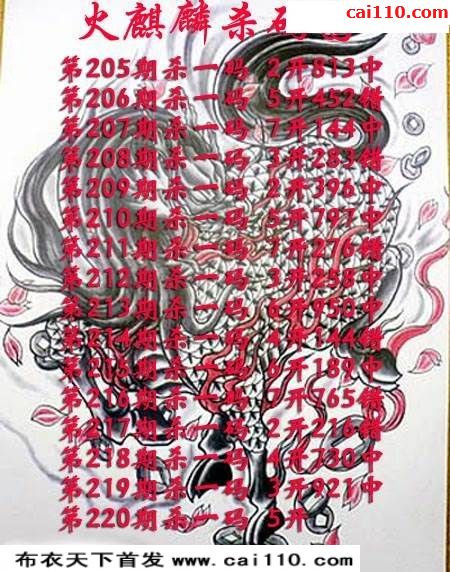 cai110.com
火麒麟杀码
第205期杀一码 2开813中
第206期杀一码 5开452错
第207期杀一码 7开144中
第208期杀一码 3开283错
第209期杀一码 2开396中
第210期杀一码 5开797中
第211期杀一码 7开276错
第212期杀一码 3开258中
第213期杀一码 6开950中
第214期杀一码 4开144错
第215期杀一码 6开189中
第216期杀一码 7开765错
第217期杀一码 2开216错
第218期杀一码 4开730中
第219期杀一码 3开921中
第220期杀一码 5开
布衣天下首发 www.cai110.com